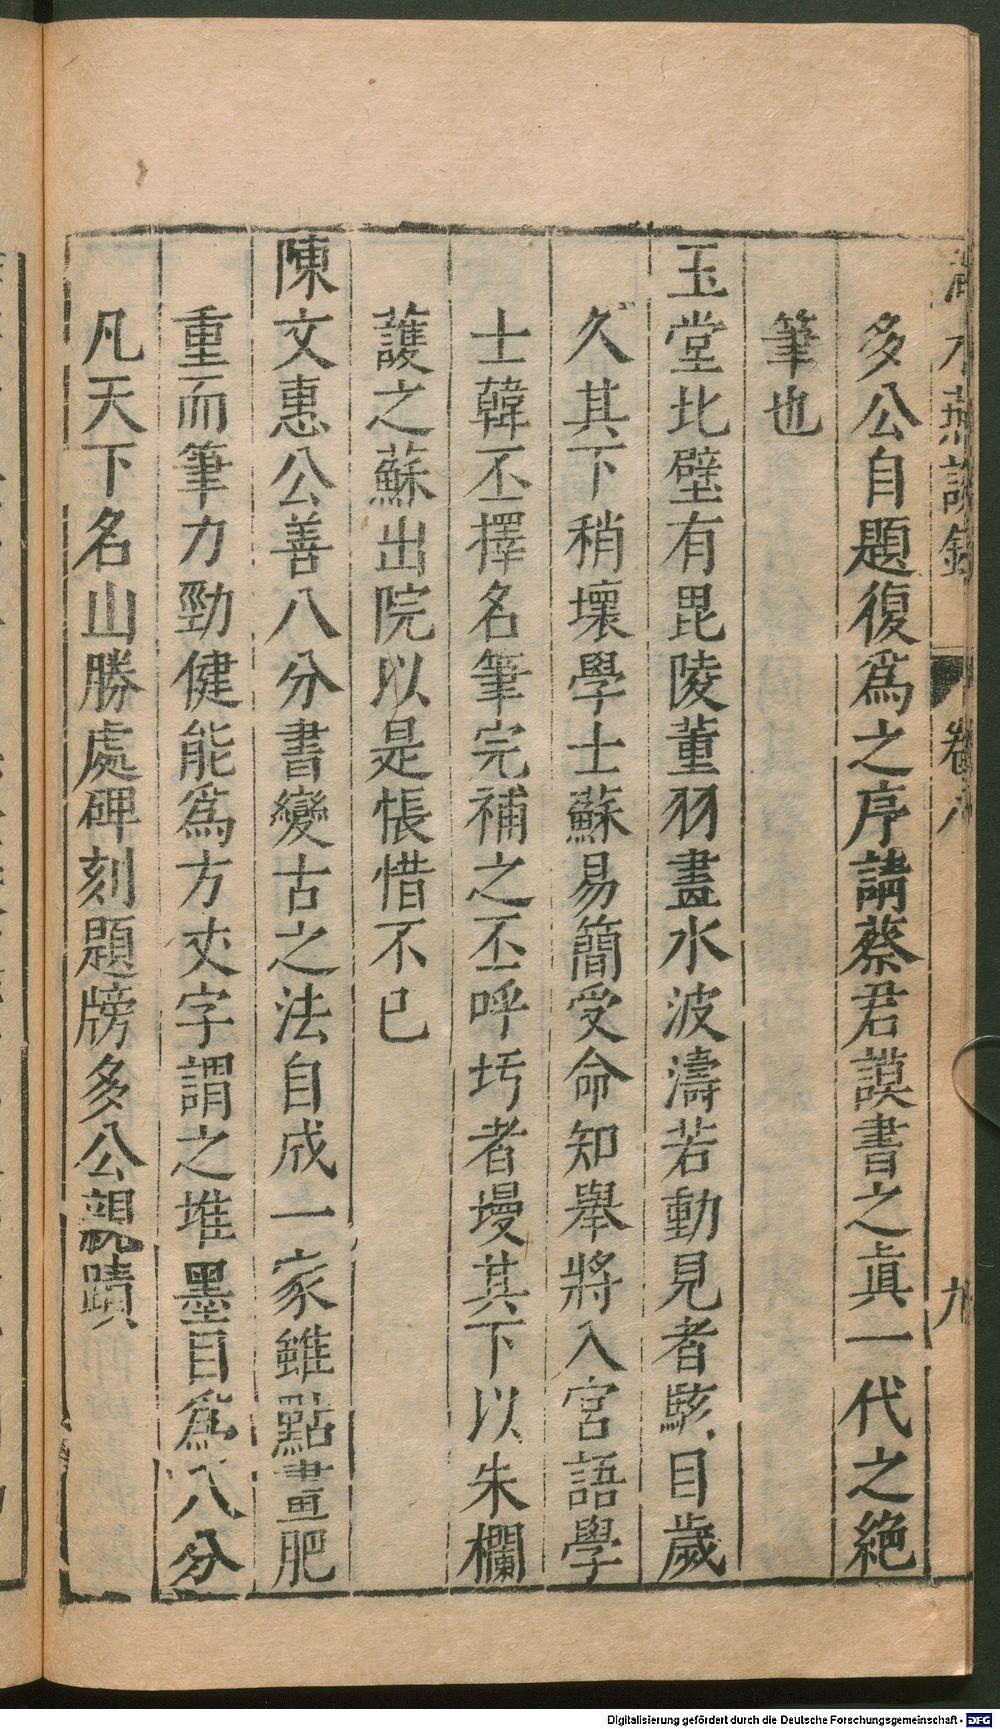 澠水燕談錄 卷八 九
多公自題復爲之序請蔡君謨書之眞一代之絕
筆也
玉堂北壁有毘陵董羽畫水波濤若動見者駭目歲
久其下稍壞學士蘇易簡受命知舉將入宮語學
士韓丕擇名筆完補之丕呼圬者墁其下以朱欄
護之蘇出院以是悵惜不已
陳文惠公善八分書變古之法自成一家雖點畫肥
重而筆力勁健能爲方丈字謂之堆墨目爲八分
凡天下名山勝處碑刻題牓多公親蹟
Digitalisierung gefördert durch die Deutsche Forschungsgemeinschaft - DFG